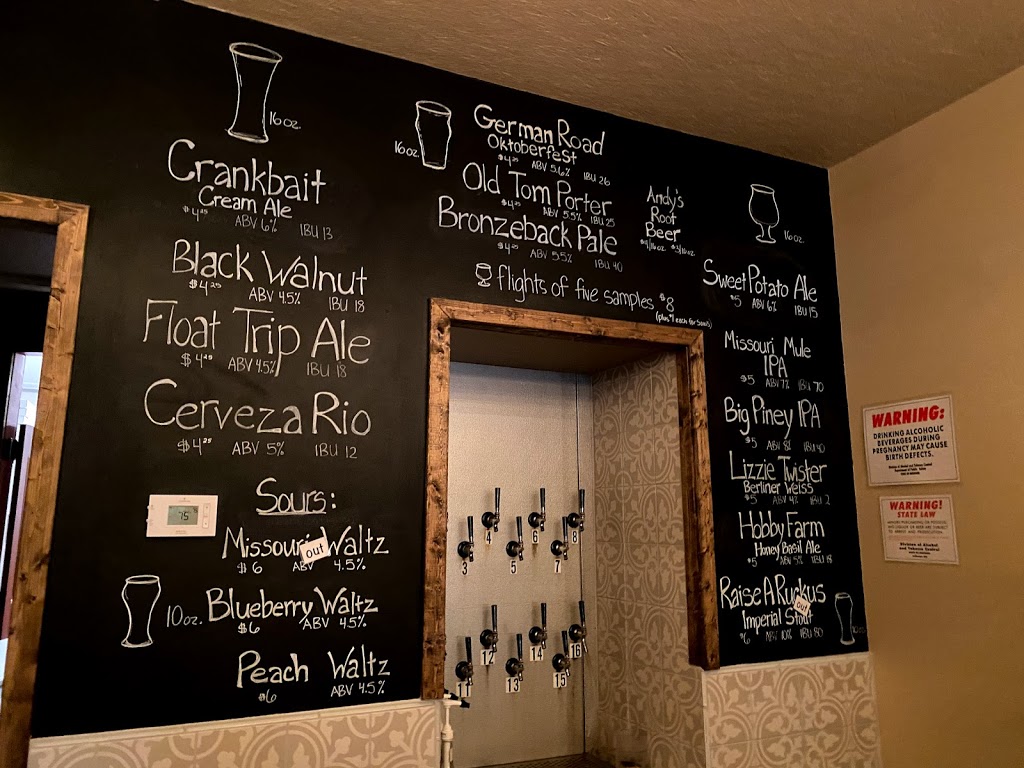 16oz.
Crankbait
Cream Ale
$4.25 ABV 6% IBU 13
Black Walnut
$4.25 ABV 4.5% IBU 18
Float Trip Ale
$4.25 ABV 4.5% IBU 18
Cerveza Rio
$4.25 ABV 5% IBU 12
75
Sours:
Missouri Waltz
out
$6 ABV 4.5%
10oz.
Blueberry Waltz
$6 ABV 4.5%
Peach Waltz
$6 ABV 4.5%
16oz.
German Road
Oktoberfest
$4.25 ABV 5.6% IBU 26
Old Tom Porter
$4.25 ABV 5.5% IBU 25
Bronzeback Pale
$4.25 ABV 5.5% IBU 40
Andy's
Root
Beer
flights of five samples $8
(plus $1 each for sours)
3 4 5 6 7 8
11 12 13 14 15 16
16oz.
Sweet Potato Ale
$5 ABV 6% IBU 15
Missouri Mule
IPA
$5 ABV 7% IBU 70
Big Piney IPA
$5 ABV IBU
Lizzie Twister
Berliner Weiss
$5 ABV 4% IBU 2
Hobby Farm
Honey Basil Ale
$5 ABV 5% IBU 18
Raise A Ruckus
out
Imperial Stout
$6 ABV 10% IBU 80
WARNING:
DRINKING ALCOHOLIC
BEVERAGES DURING
PREGNANCY MAY CAUSE
BIRTH DEFECTS.
WARNING!
STATE LAW
Division of Alcohol
and Tobacco Control